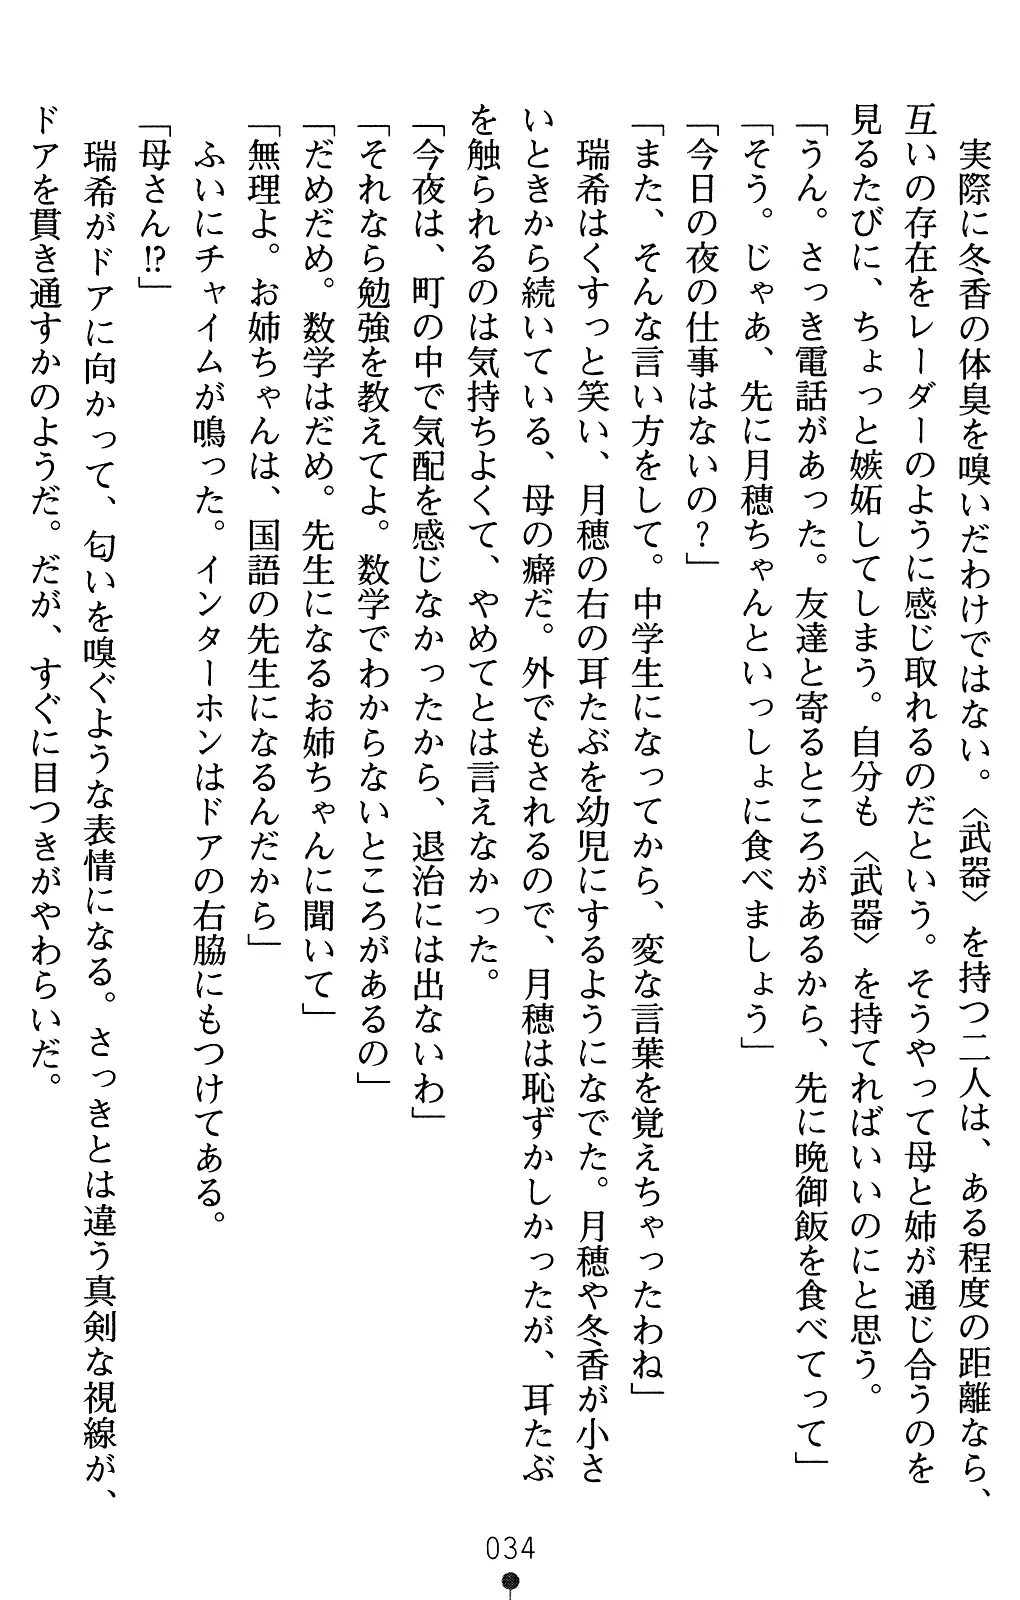 実際に冬香の体臭を嗅いだわけではない。〈武器〉を持つ二人は、ある程度の距離なら、
互いの存在をレーダーのように感じ取れるのだという。そうやって母と姉が通じ合うのを
見るたびに、ちょっと嫉妬してしまう。自分も〈武器〉を持てればいいのにと思う。
「うん。さっき電話があった。友達と寄るところがあるから、先に晩御飯を食べてって」
「そう。じゃあ、先に月穂ちゃんといっしょに食べましょう」
「今日の夜の仕事はないの？」
「また、そんな言い方をして。中学生になってから、変な言葉を覚えちゃったわね」
　瑞希はくすっと笑い、月穂の右の耳たぶを幼児にするようになでた。月穂や冬香が小さ
いときから続いている、母の癖だ。外でもされるので、月穂は恥ずかしかったが、耳たぶ
を触られるのは気持ちよくて、やめてとは言えなかった。
「今夜は、町の中で気配を感じなかったから、退治には出ないわ」
「それなら勉強を教えてよ。数学でわからないところがあるの」
「だめだめ。数学はだめ。先生になるお姉ちゃんに聞いて」
「無理よ。お姉ちゃんは、国語の先生になるんだから」
　ふいにチャイムが鳴った。インターホンはドアの右脇にもつけてある。
「母さん!?」
　瑞希がドアに向かって、匂いを嗅ぐような表情になる。さっきとは違う真剣な視線が、
ドアを貫き通すかのようだ。だが、すぐに目つきがやわらいだ。
034